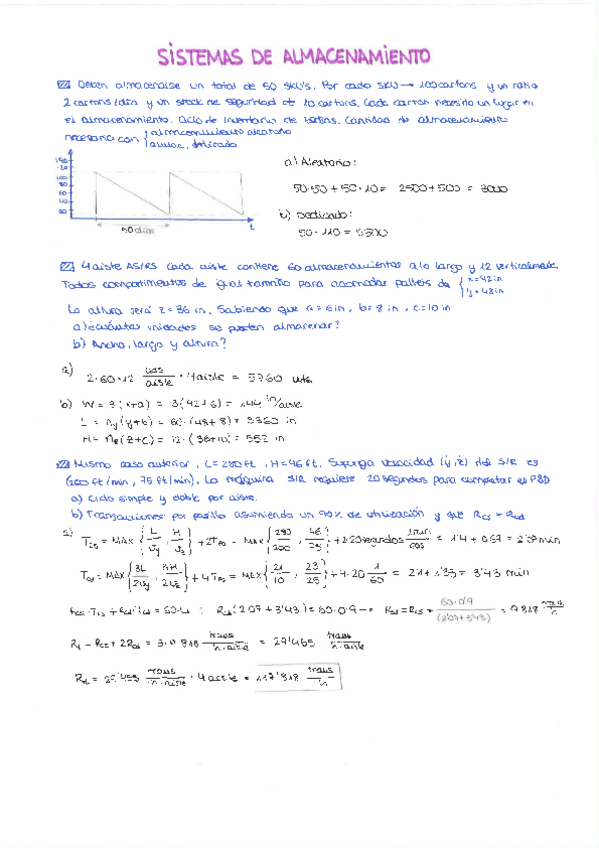 SISTEMAS DE ALMACENAMIENTO
Deben almacenarse un total de 50 SKU's. Por cada SKU → 100 cartons y un ratio
2 cartons/día y un stock de seguridad de 10 cartons. Cada carton necesita un lugar en
el almacenamiento. Ciclo de inventario de 50 días. Cantidad de almacenamiento
necesaria con { almacenamiento aleatorio
dedicado
50 días
t
a) Aleatorio:
50·50 + 50·10 = 2500 + 500 = 3000
b) Dedicado:
50·110 = 5500
4 aisle AS/RS cada aisle contiene 60 almacenamientos a lo largo y 12 verticalmente.
Todos compartimentos de igual tamaño para acomodar pallets de { x = 42 in
y = 48 in
La altura será z = 36 in. Sabiendo que a = 6 in, b = 8 in, c = 10 in
a) ¿cuántas unidades se pueden almacenar?
b) Ancho, largo y altura?
a) 2·60·12 uds/aisle · 4 aisle = 5760 uds.
b) W = 3(x+a) = 3(42+6) = 144 in/aisle
L = ny(y+b) = 60·(48+8) = 3360 in
H = nz(z+c) = 12·(36+10) = 552 in
Mismo caso anterior, L = 280 ft, H = 46 ft. Suponga velocidad (ẏ, ż) del S/R es
(200 ft/min, 75 ft/min). La máquina S/R requiere 20 segundos para completar es P&D
a) Ciclo simple y doble por aisle.
b) Transacciones por pasillo asumiendo un 90% de utilización y que Rcs = Rcd
a) Tcs = MAX { L/vy, H/vz } + 2Tpd = MAX { 280/200, 46/75 } + 2·20 segundos 1min/60s = 1'4 + 0'67 = 2'07 min
Tcd = MAX { + 4Tpd = MAX { 21/10, 23/25 } + 4·20 1/60 = 2'1 + 1'33 = 3'43 min
Rcs·Tcs + Rcd·Tcd = 60·U ; Rcd(2'07 + 3'43) = 60·0'9 → Rcd = Rcs = 60·0'9/(2'07+3'43) = 9'818 trans/h
Rt = Rcs + 2Rcd = 3·9'818 trans/h·aisle = 29'455 trans/h·aisle
Rt = 29'455 trans/h·aisle · 4 aisle = 117'818 trans/h